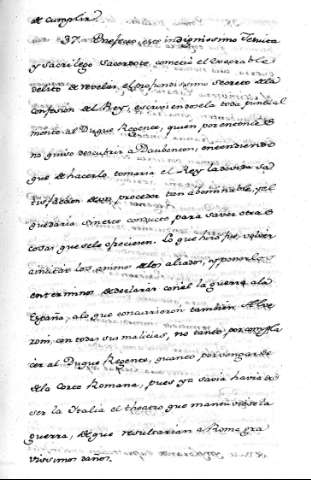 de cumplir.
37. En efecto, este indignissimo Jesuita
y Sacrilego Sacerdote, cometió el execrable
delito de revelar, el profundissimo secreto de la
Confesion del Rey, escriviendosela toda puntual
mente al Duque Regente, quien por entonces
no quiso descubrir a Daubenton, entendiendo
que de hacerlo tomaria el Rey la devida sa
tisfaccion de su proceder tan abominable, y el
quedaria sin este conducto para saver otras
cosas que se le ofreciesen. Lo que hizo fue, volver
a incitar los animos de los aliados, y ponerlos
en terminos de declarar con el la guerra a la
España, a lo que concurrieron tambien Albe
roni con todas sus malicias, no tanto, por compla
cer al Duque Regente, quanto por vengarse
de la Corte Romana, pues ya savia havia de
ser la Italia el theatro que mantuviese la
guerra, de que resultarian a Roma gra
vissimos daños.